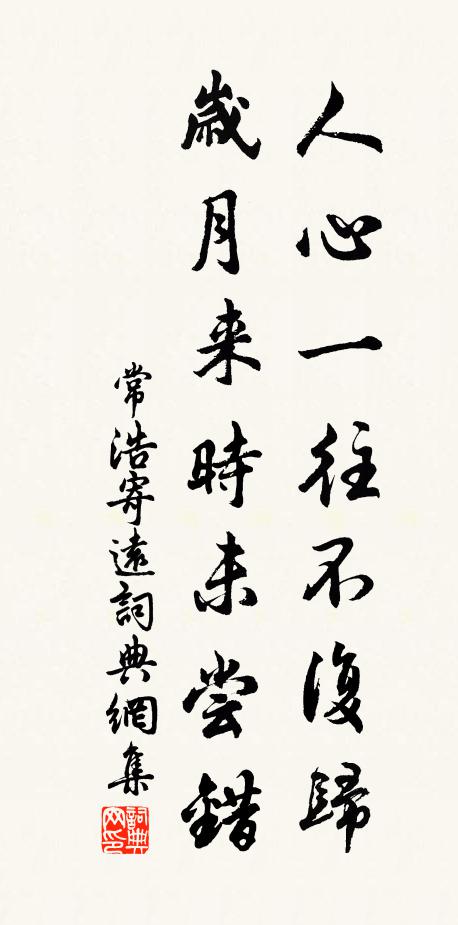 人心一往不復歸
歲月来時未尝錯
常浩寄遠詞典網集
詞典网印